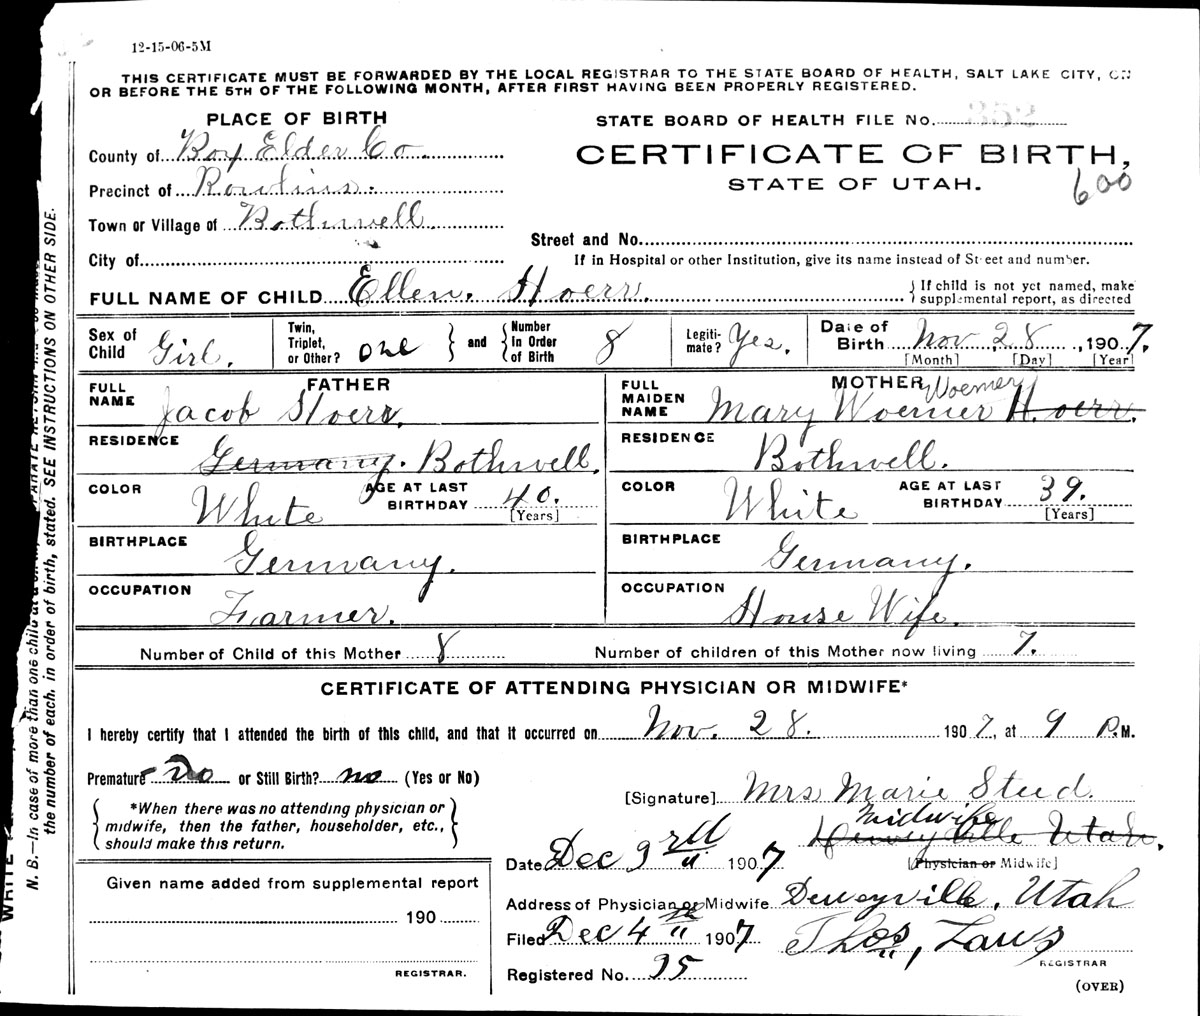 12-15-06-5M
THIS CERTIFICATE MUST BE FORWARDED BY THE LOCAL REGISTRAR TO THE STATE BOARD OF HEALTH, SALT LAKE CITY, ON
OR BEFORE THE 5TH OF THE FOLLOWING MONTH, AFTER FIRST HAVING BEEN PROPERLY REGISTERED.
PLACE OF BIRTH
STATE BOARD OF HEALTH FILE No. 352
County of Box Elder Co.
CERTIFICATE OF BIRTH,
Precinct of Rowlins.
STATE OF UTAH.
600
Town or Village of Bothwell
Street and No.
City of
If in Hospital or other Institution, give its name instead of Street and number.
FULL NAME OF CHILD Ellen. Hoerr.
If child is not yet named, make supplemental report, as directed
Sex of Child Girl.
Twin, Triplet, or Other? one
and
Number in Order of Birth 8
Legitimate? Yes.
Date of Birth Nov 28, 1907.
[Month] [Day] [Year]
FATHER
FULL NAME Jacob Hoerr.
MOTHER
FULL MAIDEN NAME Mary Woerner Hoerr.
Woerner
RESIDENCE Germany. Bothwell.
RESIDENCE Bothwell.
COLOR White
AGE AT LAST BIRTHDAY 40.
[Years]
COLOR White
AGE AT LAST BIRTHDAY 39.
[Years]
BIRTHPLACE Germany.
BIRTHPLACE Germany.
OCCUPATION Farmer.
OCCUPATION House Wife.
Number of Child of this Mother 8
Number of children of this Mother now living 7.
CERTIFICATE OF ATTENDING PHYSICIAN OR MIDWIFE*
I hereby certify that I attended the birth of this child, and that it occurred on Nov. 28. 1907, at 9 P.M.
Premature No or Still Birth? no (Yes or No)
*When there was no attending physician or
midwife, then the father, householder, etc.,
should make this return.
[Signature] Mrs Marie Steed.
Midwife
Deweyville Utah.
Date Dec 3rd 1907
[Physician or Midwife]
Given name added from supplemental report
190
REGISTRAR.
Address of Physician or Midwife Deweyville, Utah
Filed Dec 4th 1907
Thos,
REGISTRAR
Registered No. 35
(OVER)
N. B.—In case of more than one child
the number of each, in order of birth, stated. SEE INSTRUCTIONS ON OTHER SIDE.
WRITE